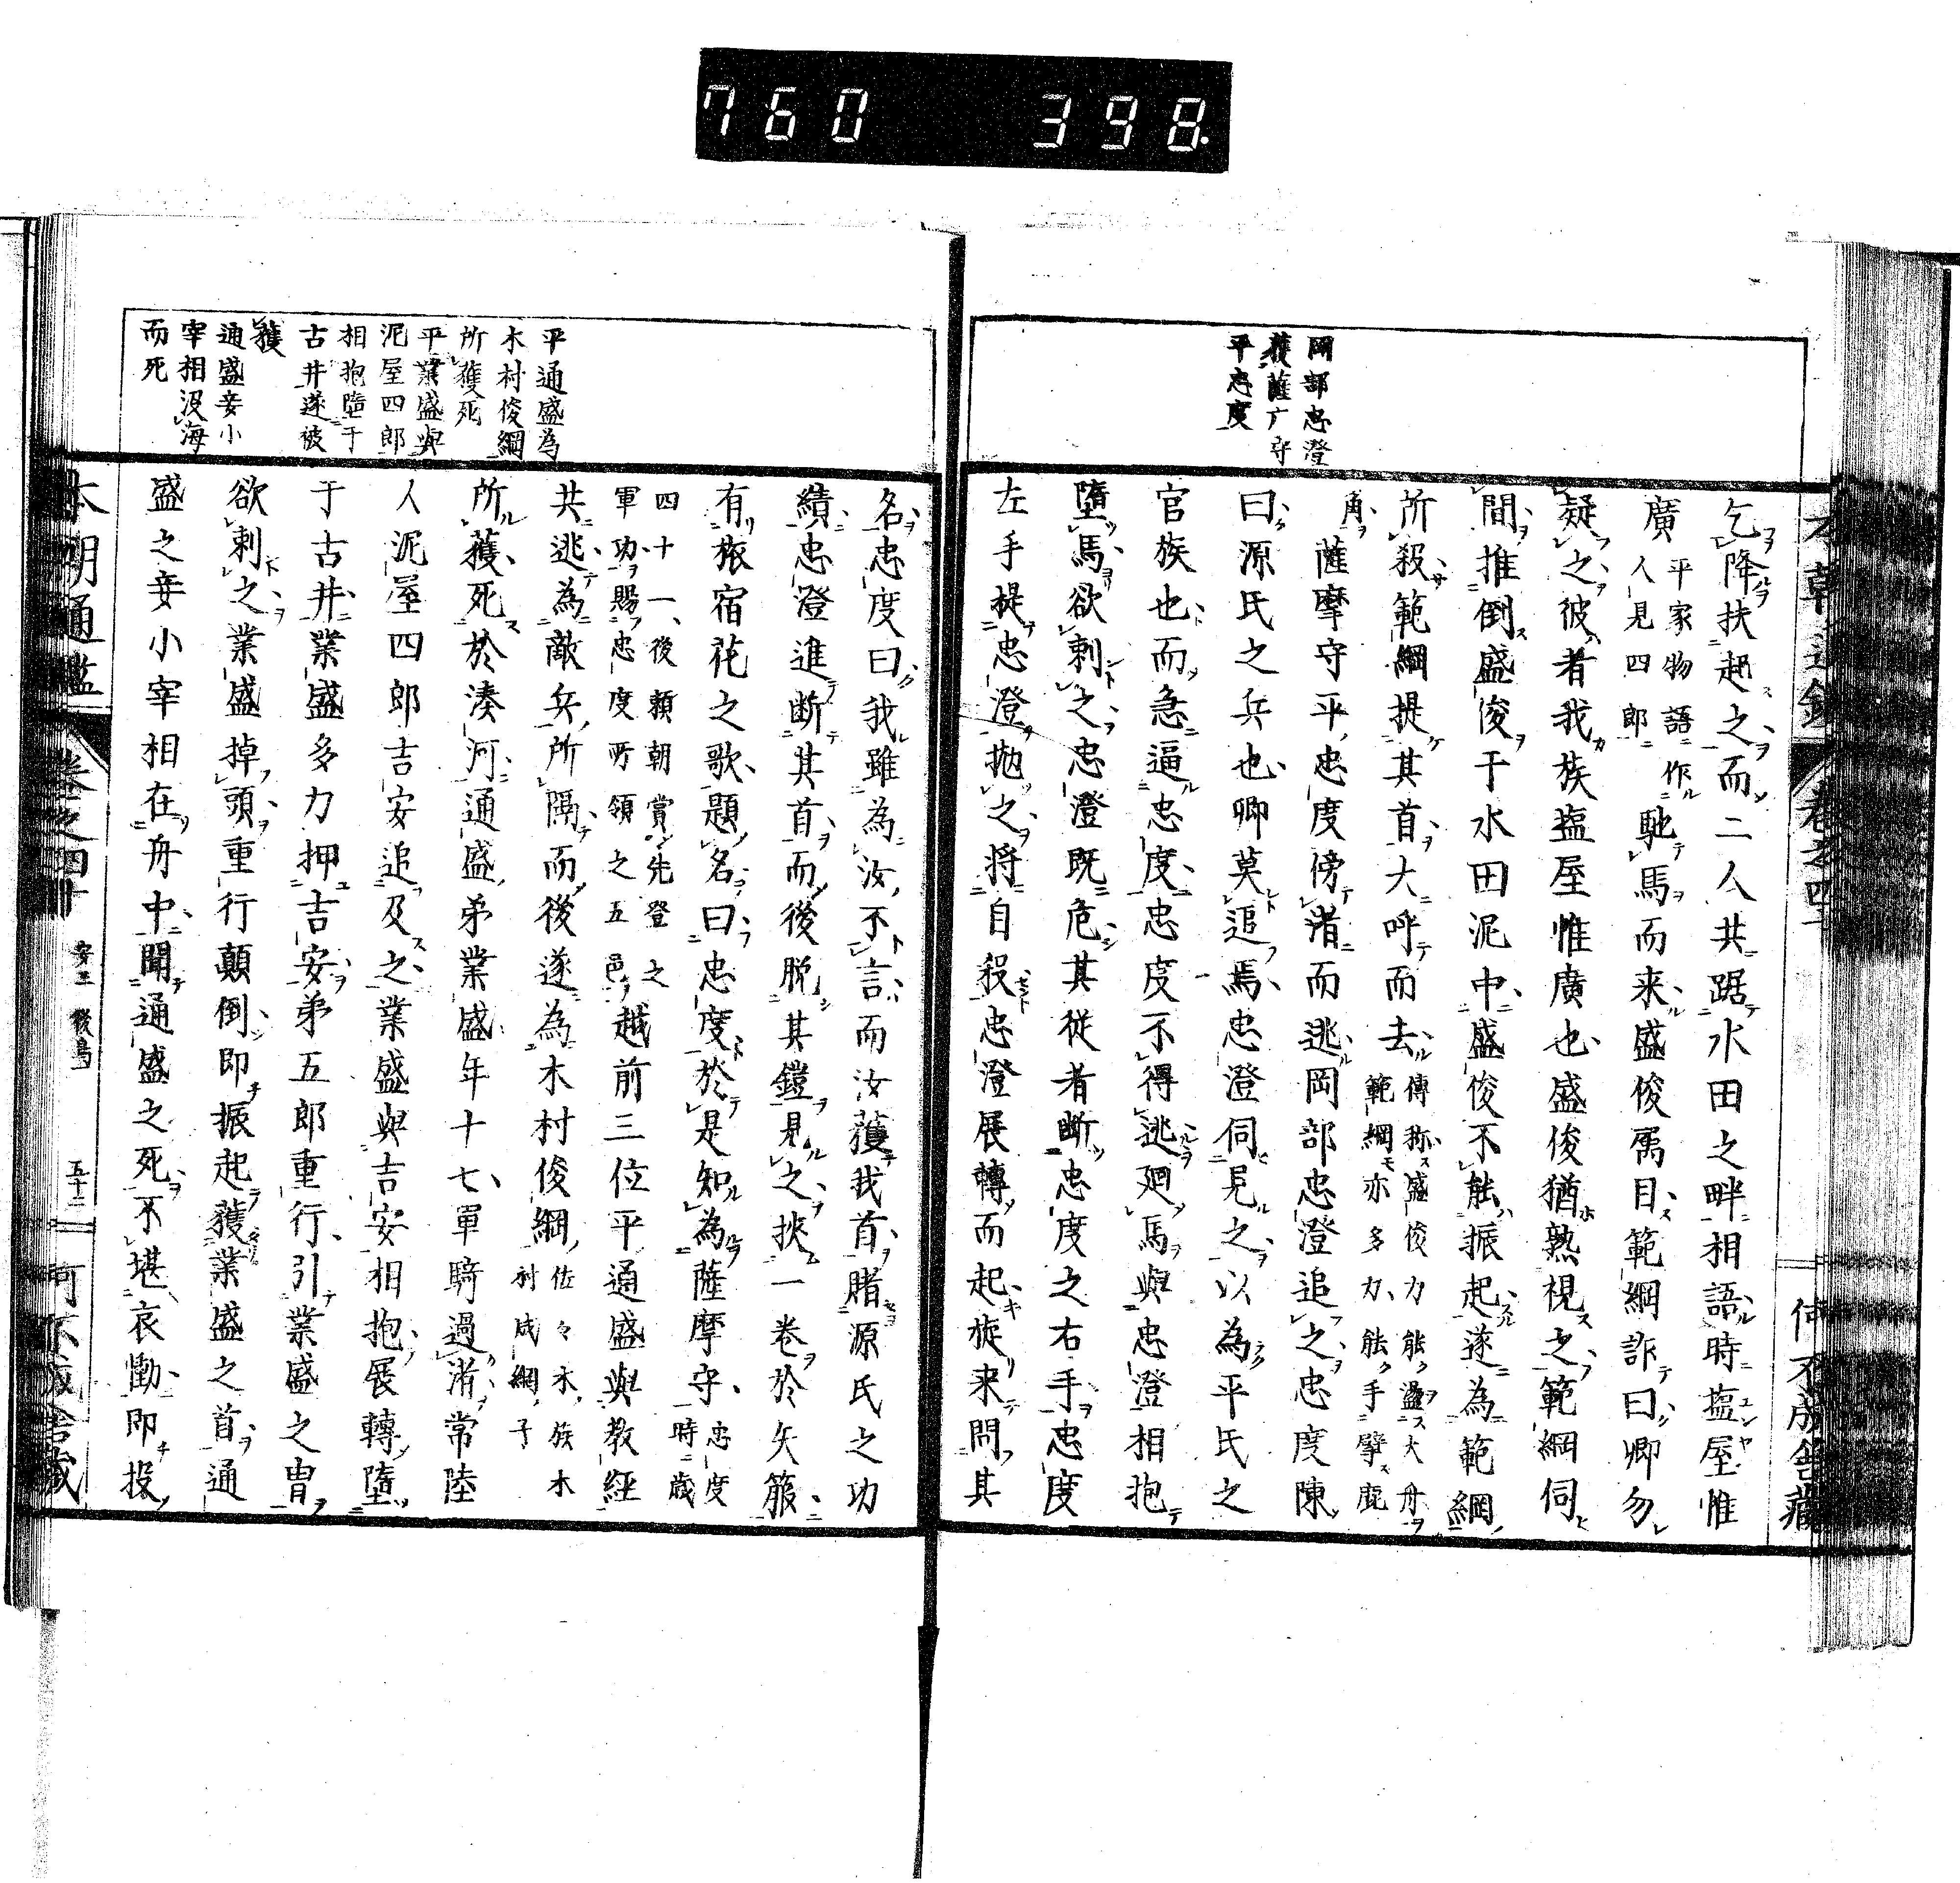 760 398
岡部忠澄
獲薩广守
平忠度
乞降扶起之而二人共踞水田之畔相語時塩屋惟
廣平家物語作人見四郎馳馬而来盛俊属目範綱詐曰卿勿
疑之彼者我族塩屋惟廣也盛俊猶熟視之範綱伺
間推倒盛俊于水田泥中盛俊不能振起遂為範綱
所殺範綱提其首大呼而去傳称盛俊力能盪大舟範綱亦多力能手擘鹿
角薩摩守平忠度傍渚而逃岡部忠澄追之忠度陳
曰源氏之兵也卿莫追焉忠澄伺見之以為平氏之
官族也而急逼忠度忠度不得逃廻馬與忠澄相抱
墮馬欲刺之忠澄既危其従者断忠度之右手忠度
左手提忠澄拋之将自殺忠澄展轉而起旋来問其
平通盛為
木村俊綱
所獲死
平業盛與
泥屋四郎
相抱墮于
古井遂被
獲
通盛妾小
宰相没海
而死
名忠度曰我雖為汝不言而汝獲我首賭源氏之功
績忠澄進断其首而後脱其鎧見之挾一巻於矢箙
有旅宿花之歌題名曰忠度於是知為薩摩守忠度時歳
四十一後頼朝賞先登之軍功賜忠度所領之五邑越前三位平通盛與教経
共逃為敵兵所隔而後遂為木村俊綱佐々木族木村成綱子
所獲死於湊河通盛弟業盛年十七単騎過渚常陸
人泥屋四郎吉安追及之業盛與吉安相抱展轉墮
于古井業盛多力押吉安弟五郎重行引業盛之冑
欲刺之業盛掉頭重行顛倒即振起獲業盛之首通
盛之妾小宰相在舟中聞通盛之死不堪哀慟即投
本朝通鑑 巻之四十 安三 後鳥 五十二